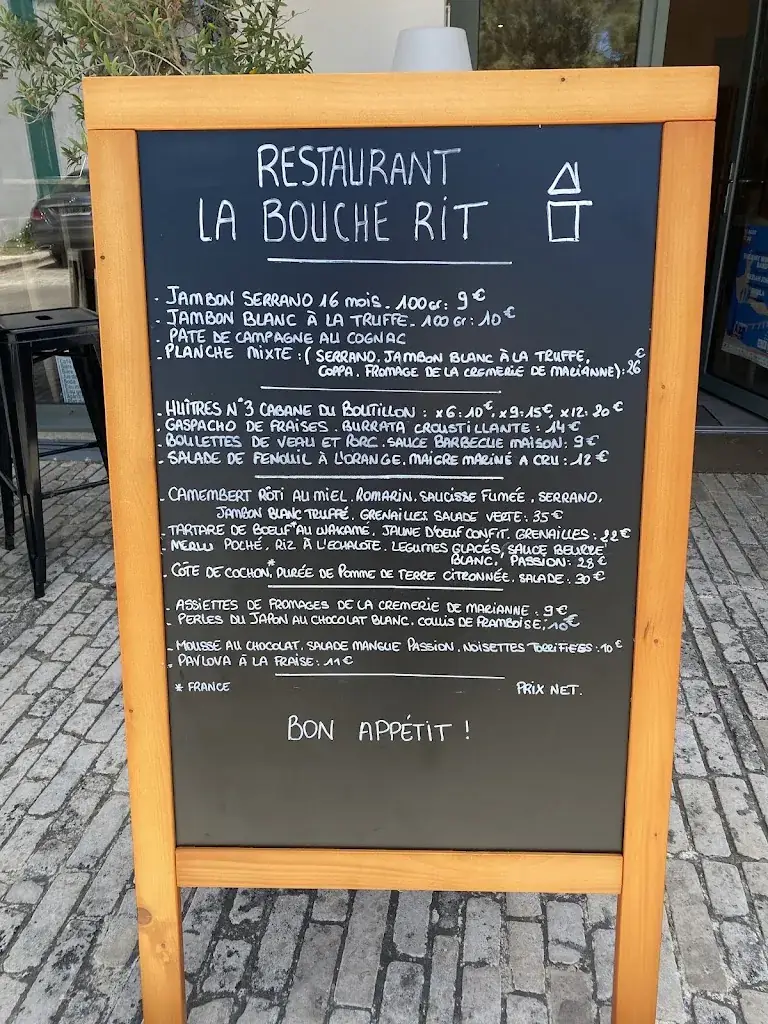 RESTAURANT
LA BOUCHE RIT
- JAMBON SERRANO 16 mois. 100gr: 9€
- JAMBON BLANC À LA TRUFFE. 100 Gr: 10€
- PATE DE CAMPAGNE AU COGNAC
- PLANCHE MIXTE : ( SERRANO, JAMBON BLANC À LA TRUFFE,
COPPA, FROMAGE DE LA CREMERIE DE MARIANNE): 26€
- HUÎTRES N°3 CABANE DU BOUTILLON : x6: 10€, x9: 15€, x12: 20€
- GASPACHO DE FRAISES. BURRATA CROUSTILLANTE : 14€
- BOULETTES DE VEAU ET PORC. SAUCE BARBECUE MAISON: 9€
- SALADE DE FENOUIL À L'ORANGE. MAIGRE MARINÉ A CRU: 12€
- CAMEMBERT RÔTI AU MIEL. ROMARIN. SAUCISSE FUMÉE. SERRANO,
JAMBON BLANC TRUFFÉ. GRENAILLES. SALADE VERTE: 35€
- TARTARE DE BOEUF* AU WAKAME, JAUNE D'OEUF CONFIT. GRENAILLES: 22€
- MERLU POCHÉ, RIZ À L'ECHALOTE. LEGUMES GLACÉS, SAUCE BEURRE
BLANC, PASSION: 28€
- CÔTE DE COCHON*, PURÉE DE POMME DE TERRE CITRONNÉE. SALADE: 30€
- ASSIETTES DE FROMAGES DE LA CREMERIE DE MARIANNE: 9€
- PERLES DU JAPON AU CHOCOLAT BLANC. COULIS DE FRAMBOISE: 10€
- MOUSSE AU CHOCOLAT. SALADE MANGUE PASSION. NOISETTES TORRIFIEES: 10€
- PAVLOVA À LA FRAISE: 11€
* FRANCE
PRIX NET.
BON APPÉTIT !